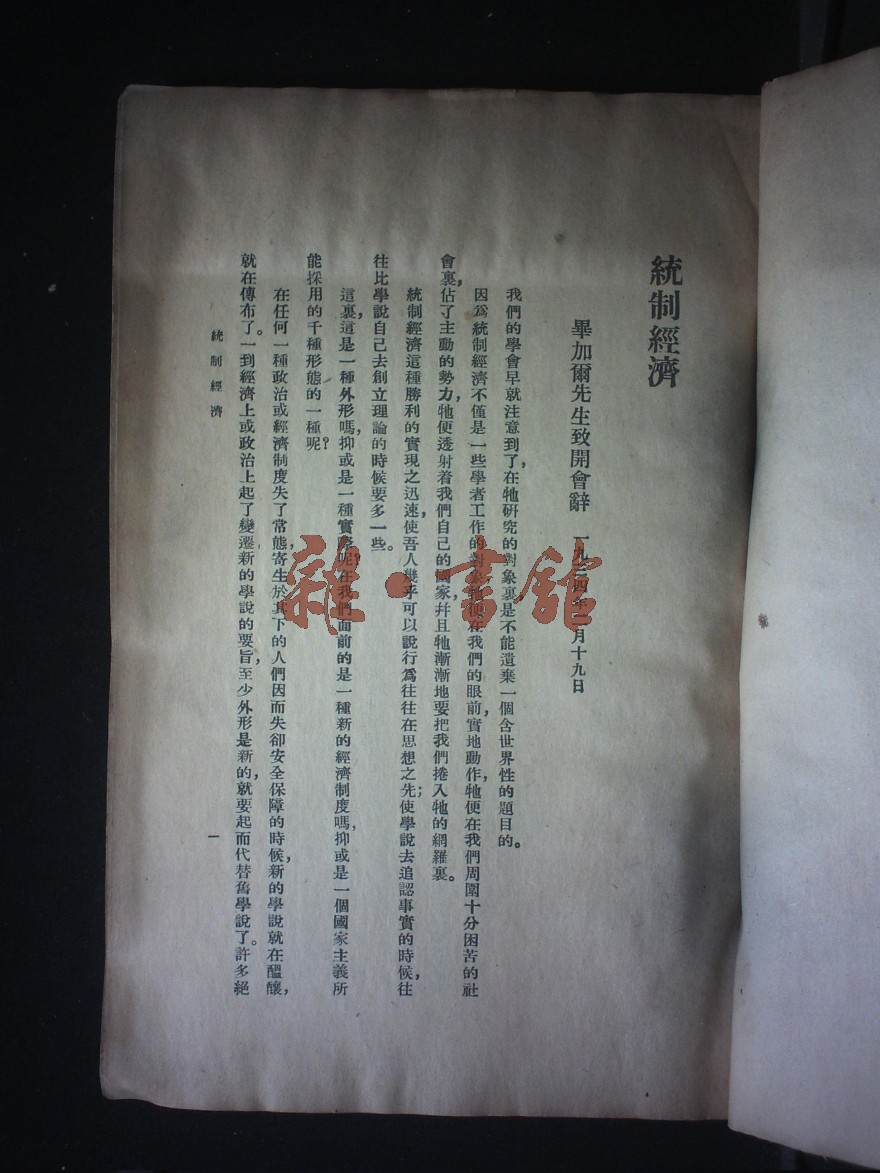 統制經濟
畢加爾先生致開會辭 一九三四年二月十九日
我們的學會早就注意到了,在牠硏究的對象裏是不能遺棄一個含世界性的題目的。
因爲統制經濟不僅是一些學者工作的對象,牠便在我們的眼前,實地動作,牠便在我們周圍十分困苦的社
會裏,佔了主動的勢力,牠便透射着我們自己的國家,幷且牠漸漸地要把我們捲入牠的網羅裏。
統制經濟這種勝利的實現之迅速,使吾人幾乎可以說行爲往往在思想之先;使學說去追認事實的時候,往
往比學說自己去創立理論的時候要多一些。
這裏,這是一種外形嗎,抑或是一種實際呢?在我們面前的是一種新的經濟制度嗎,抑或是一個國家主義所
能採用的千種形態的一種呢?
在任何一種政治或經濟制度失了常態,寄生於其下的人們因而失卻安全保障的時候,新的學說就在醞釀,
就在傳布了。一到經濟上或政治上起了變遷,新的學說的要旨,至少外形是新的,就要起而代替舊學說了。許多絕
統制經濟
一
雜·書館